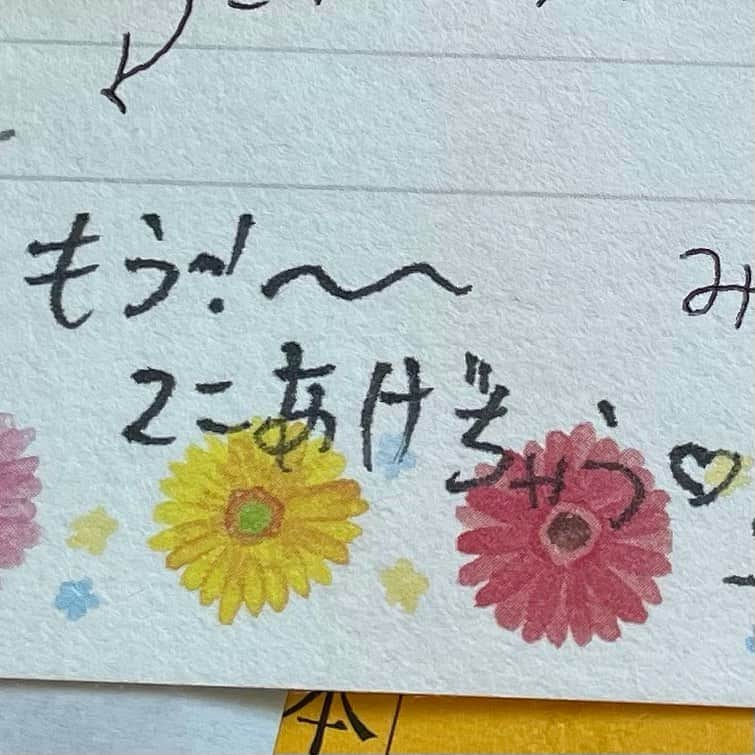 もう〜!〜〜
み
2こあげぢゃう♡
本